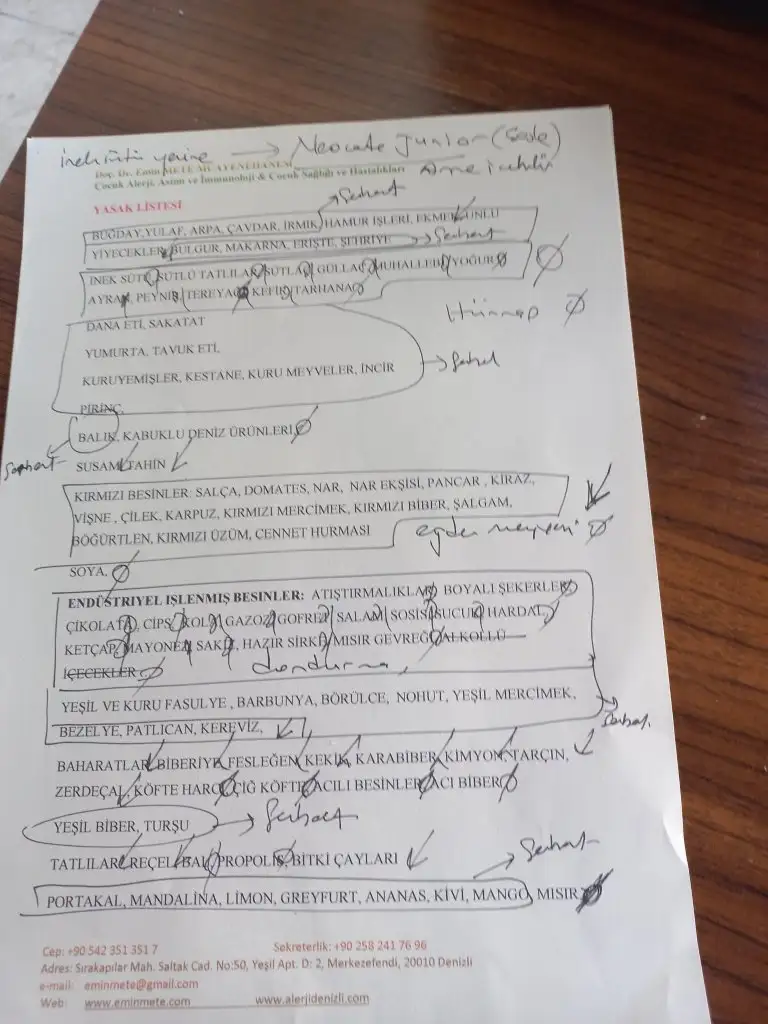 inek sütü yerine → Neocate Junior (Sade)
Doç. Dr. Emin METE
Çocuk Alerji, Astım ve İmmunoloji & Çocuk Sağlığı ve Hastalıkları
Serbest
YASAK LİSTESİ
BUĞDAY, YULAF, ARPA, ÇAVDAR, İRMİK, HAMUR İŞLERİ, EKMEK UNLU
YİYECEKLER, BULGUR, MAKARNA, ERİŞTE, ŞEHRİYE → Serbest
İNEK SÜTÜ, SÜTLÜ TATLILAR, SÜTLAÇ, GÜLLAÇ, MUHALLEBİ, YOĞURT,
AYRAN, PEYNİR, TEREYAĞ, KEFİR, TARHANA
Hünnap
DANA ETİ, SAKATAT
YUMURTA, TAVUK ETİ,
KURUYEMİŞLER, KESTANE, KURU MEYVELER, İNCİR → Serbest
PİRİNÇ,
BALIK, KABUKLU DENİZ ÜRÜNLERİ
Serbest
SUSAM, TAHİN
KIRMIZI BESİNLER: SALÇA, DOMATES, NAR, NAR EKŞİSİ, PANCAR , KİRAZ,
VİŞNE , ÇİLEK, KARPUZ, KIRMIZI MERCİMEK, KIRMIZI BİBER, ŞALGAM,
BÖĞÜRTLEN, KIRMIZI ÜZÜM, CENNET HURMASI
ejder meyvesi
SOYA,
ENDÜSTRİYEL İŞLENMİŞ BESİNLER: ATIŞTIRMALIKLAR, BOYALI ŞEKERLER,
ÇİKOLATA, CİPS, KOLA, GAZOZ, GOFRET, SALAM, SOSİS, SUCUK, HARDAL,
KETÇAP, MAYONEZ, SAKIZ, HAZIR SİRKE, MISIR GEVREĞİ, ALKOLLÜ
İÇECEKLER
dondurma,
YEŞİL VE KURU FASULYE , BARBUNYA, BÖRÜLCE, NOHUT, YEŞİL MERCİMEK,
BEZELYE, PATLICAN, KEREVİZ,
Serbest
BAHARATLAR, BİBERİYE, FESLEĞEN, KEKİK, KARABİBER, KİMYON, TARÇIN,
ZERDEÇAL, KÖFTE HARCI, ÇİĞ KÖFTE, ACILI BESİNLER, ACI BİBER
YEŞİL BİBER, TURŞU → Serbest
TATLILAR, REÇEL, BAL, PROPOLİS, BİTKİ ÇAYLARI
Serbest
PORTAKAL, MANDALİNA, LİMON, GREYFURT, ANANAS, KİVİ, MANGO, MISIR
Cep: +90 542 351 351 7 Sekreterlik: +90 258 241 76 96
Adres: Sırakapılar Mah. Saltak Cad. No:50, Yeşil Apt. D: 2, Merkezefendi, 20010 Denizli
e-mail: eminmete@gmail.com
Web: www.eminmete.com www.alerjidenizli.com